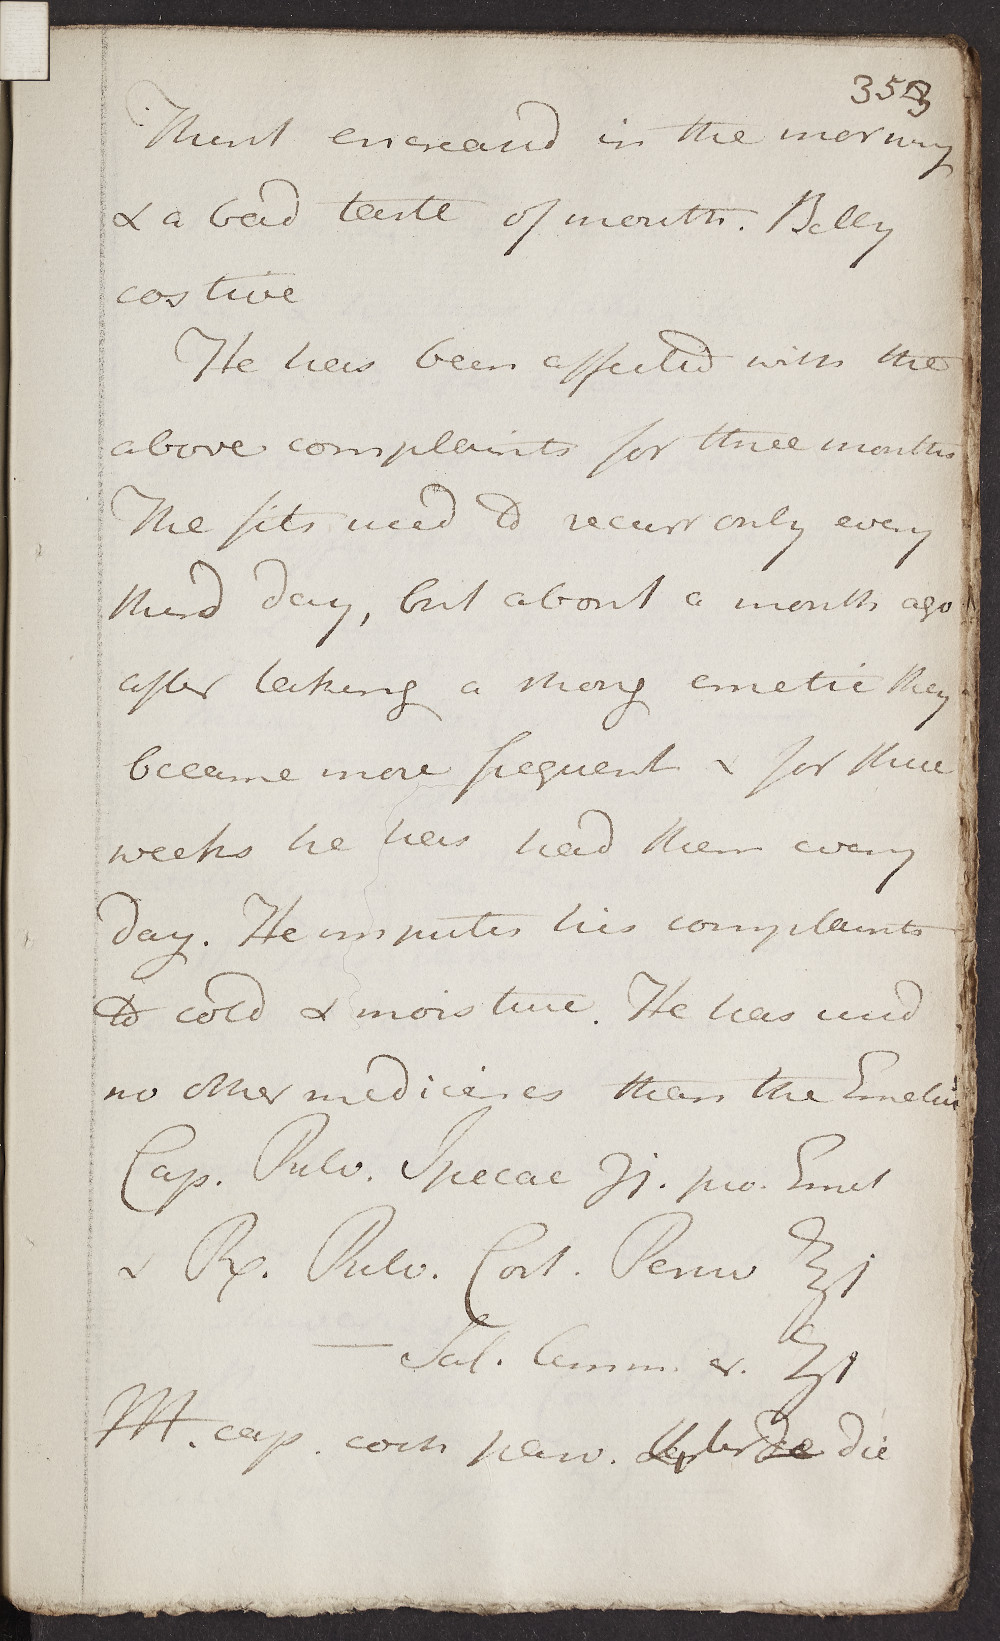 353
Thirst encreased in the morning
& a bad taste of mouth. Belly
costive
He has been affected with the
above complaints for three months
The fits used to recurr only every
third day, but about a month ago
after taking a strong emetic they
became more frequent & for three
weeks he has had them every
day. He imputes his complaints
to cold & moisture. He has used
no other medicines than the Emetic
Cap. Pulv. Ipecac ʒj. pro. Emet
& Rx. Pulv. Cort. Peruv ℥j
— Sal. amm. ℥j
M. cap. coch parv. die